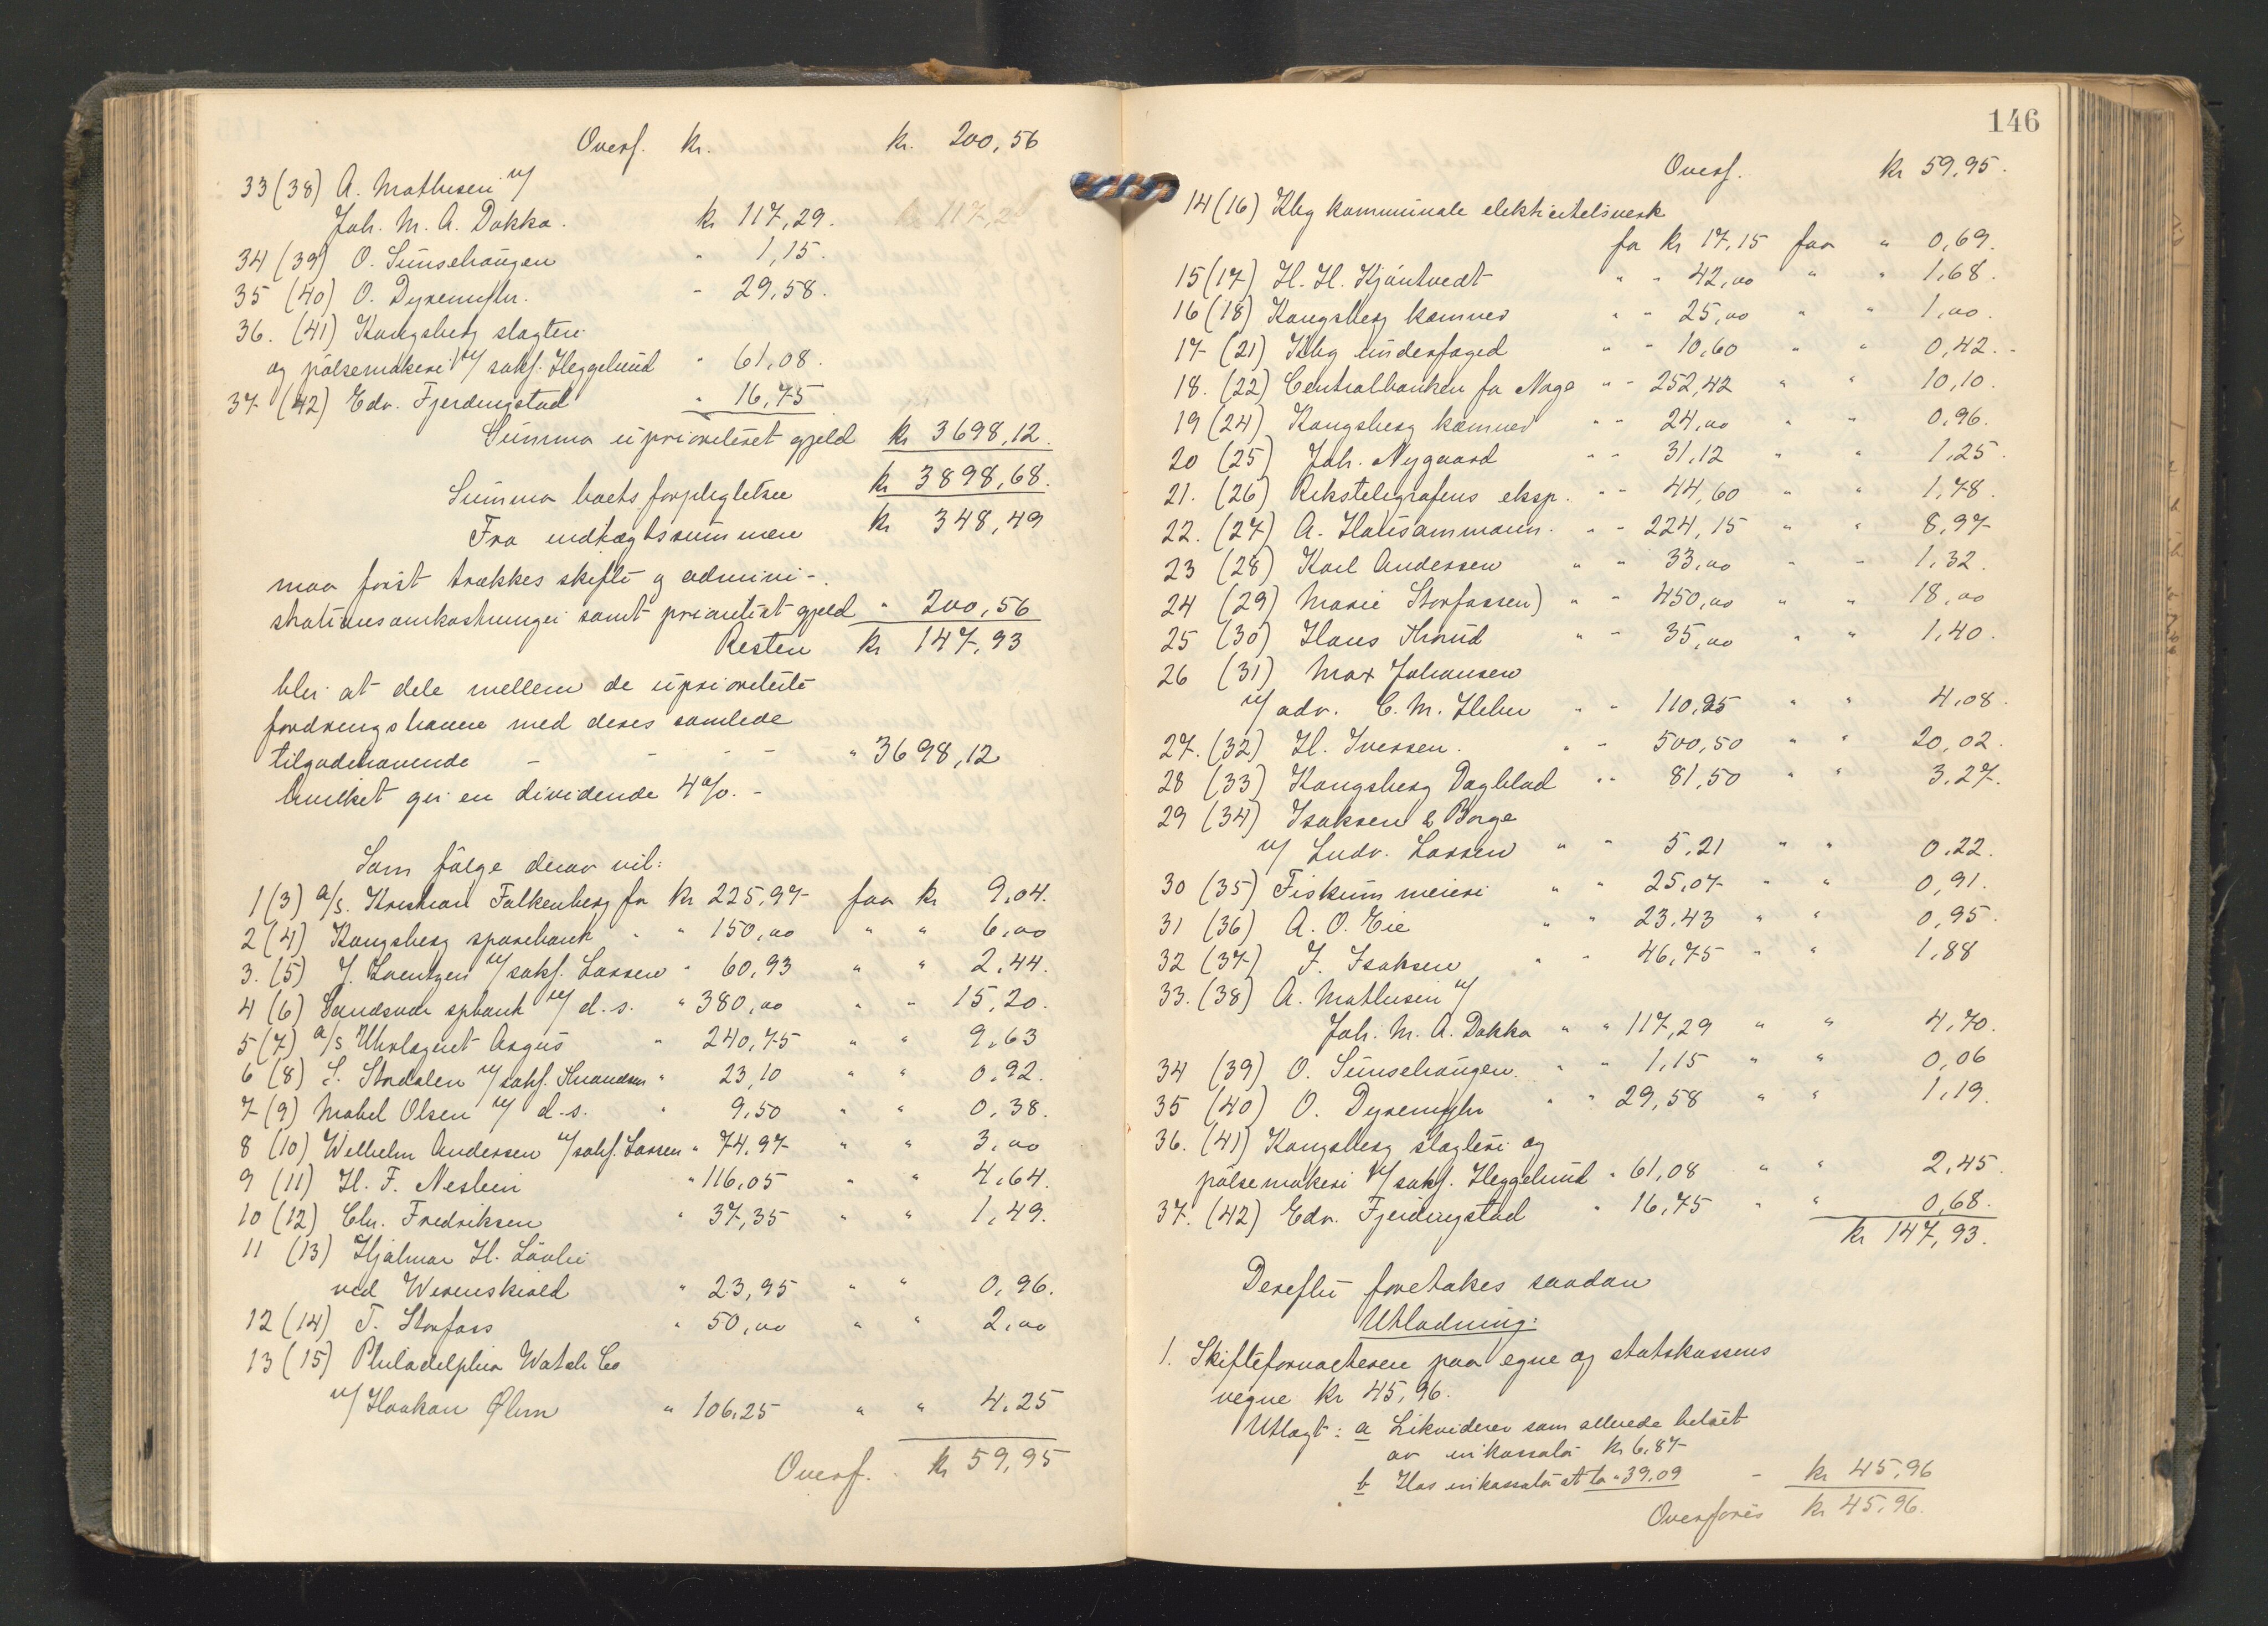 Overf. kr. kr. 200,56
33 (38) A. Mathesen v/
Joh. M. A. Dokka. kr 117,29.
34 (39) O. Sunsehaugen " 1,15.
35 (40) O. Dyremyhr. - 29,58.
36. (41) Kongsberg slagteri
og pölsemakeri v/ sakf. Heggelund " 61,08.
37 (42) Edv. Fjerdingstad " 16,75
Summa uprioritéret gjeld kr 3698,12.
Summa boets forpligtelser kr 3898,68.
Fra indtægtssummen kr 348,49
maa först trækkes skifte og admini-
strationsomkostninger samt prioritért gjeld " 200,56
Resten kr 147,93
blir at dele mellem de uprioriterte
fordringshavere med deres samlede
tilgodehavende - - - - " 3698,12
hvilket gir en dividende 4%. -
Som fölge derav vil:
1 (3) a/s. Kristian Falkenberg for kr 225,97 faar kr 9,04.
2 (4) Kongsberg sparebank " " 150,00 " " 6,00
3. (5) J. Lorentzen v/ sakf. Lassen " 60,93 " " 2,44.
4 (6) Sandsvær spbank v/ d.s. " 380,00 " " 15,20.
5 (7) a/s Uhrlageret Argus " 240,75 " " 9,63
6 (8) S. Stordalen v/ sakf. Knandsen " 23,10 " " 0,92.
7 (9) Mabel Olsen v/ d.s. " 9,50 " " 0,38.
8 (10) Wilhelm Andersen v/ sakf. Lassen " 74,97 " " 3,00
9 (11) H. F. Neslein " 116,05 " " 4,64.
10 (12) Chr. Fredriksen " 37,35 " " 1,49.
11 (13) Hjalmar H. Lövlie
ved Werenskiold " 23,95 " " 0,96.
12 (14) T. Storfoss " 50,00 " " 2,00
13 (15) Philadelphia Watch Co
v/ Haakon Ølum " 106,25 " " 4,25
Overf. kr 59,95
146
Overf. kr 59,95.
14 (16) Kbg kommunale elektricitetsverk
for kr 17,15 faar " 0,69.
15 (17) H. H. Kjöntvedt " " 42,00 " " 1,68.
16 (18) Kongsberg kæmner " " 25,00 " " 1,00.
17 (21) Kbg underfoged " " 10,60 " " 0,42.-
18. (22) Centralbanken for Norge " " 252,42 " " 10,10.
19 (24) Kongsberg kæmner " " 24,00 " " 0,96.
20 (25) Joh. Nygaard " " 31,12 " " 1,25.
21. (26) Rikstelegrafens eksp. " " 44,60 " " 1,78.
22. (27) A. Hausammann. " " 224,15 " " 8,97
23 (28) Karl Andersen " " 33,00 " " 1,32.
24 (29) Marie Storfossen) " " 450,00 " " 18,00
25 (30) Hans Thrud " " 35,00 " " 1,40.
26 (31) Max Johansen
v/ adv. C. M. Heber " " 110,25 " " 4,08.
27. (32) H. Iversen. " " 500,50 " " 20,02.
28 (33) Kongsberg Dagblad " " 81,50 " " 3,27.
29 (34) Isaksen & Borge
v/ Ludv. Lassen " " 5,21 " " 0,22.
30 (35) Fiskum meieri " " 25,07 " " 0,91.
31 (36) A. O. Eie " " 23,43 " " 0,95.
32 (37) J. Isaksen " " 46,75 " " 1,88
33. (38) A. Mathesen v/
Joh. M. A. Dokka " " 117,29 " " 4,70.
34 (39) O. Sunsehaugen. " " 1,15 " " 0,06
35 (40) O. Dyremyhr " " 29,58 " " 1,19.
36. (41) Kongsberg slagteri og
pölsemakeri v/ sakf. Heggelund " 61,08 " " 2,45.
37. (42) Edv. Fjerdingstad " 16,75 " " 0,68.
kr 147,93.
Derefter foretakes saadan
Utlodning:
1. Skifteforvalteren paa egne og statskassens
vegne kr 45,96.
Utlagt: a Likviderer som allerede betalt
av inkassator kr 6,87
b Hos inkassator at ta " 39,09 - kr 45,96
Overföres kr 45,96.